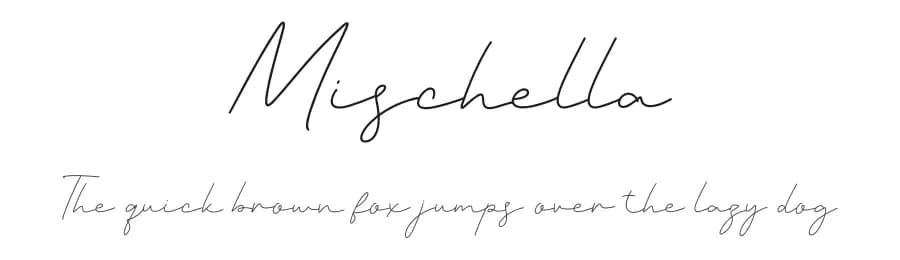 Mischella
The quick brown fox jumps over the lazy dog